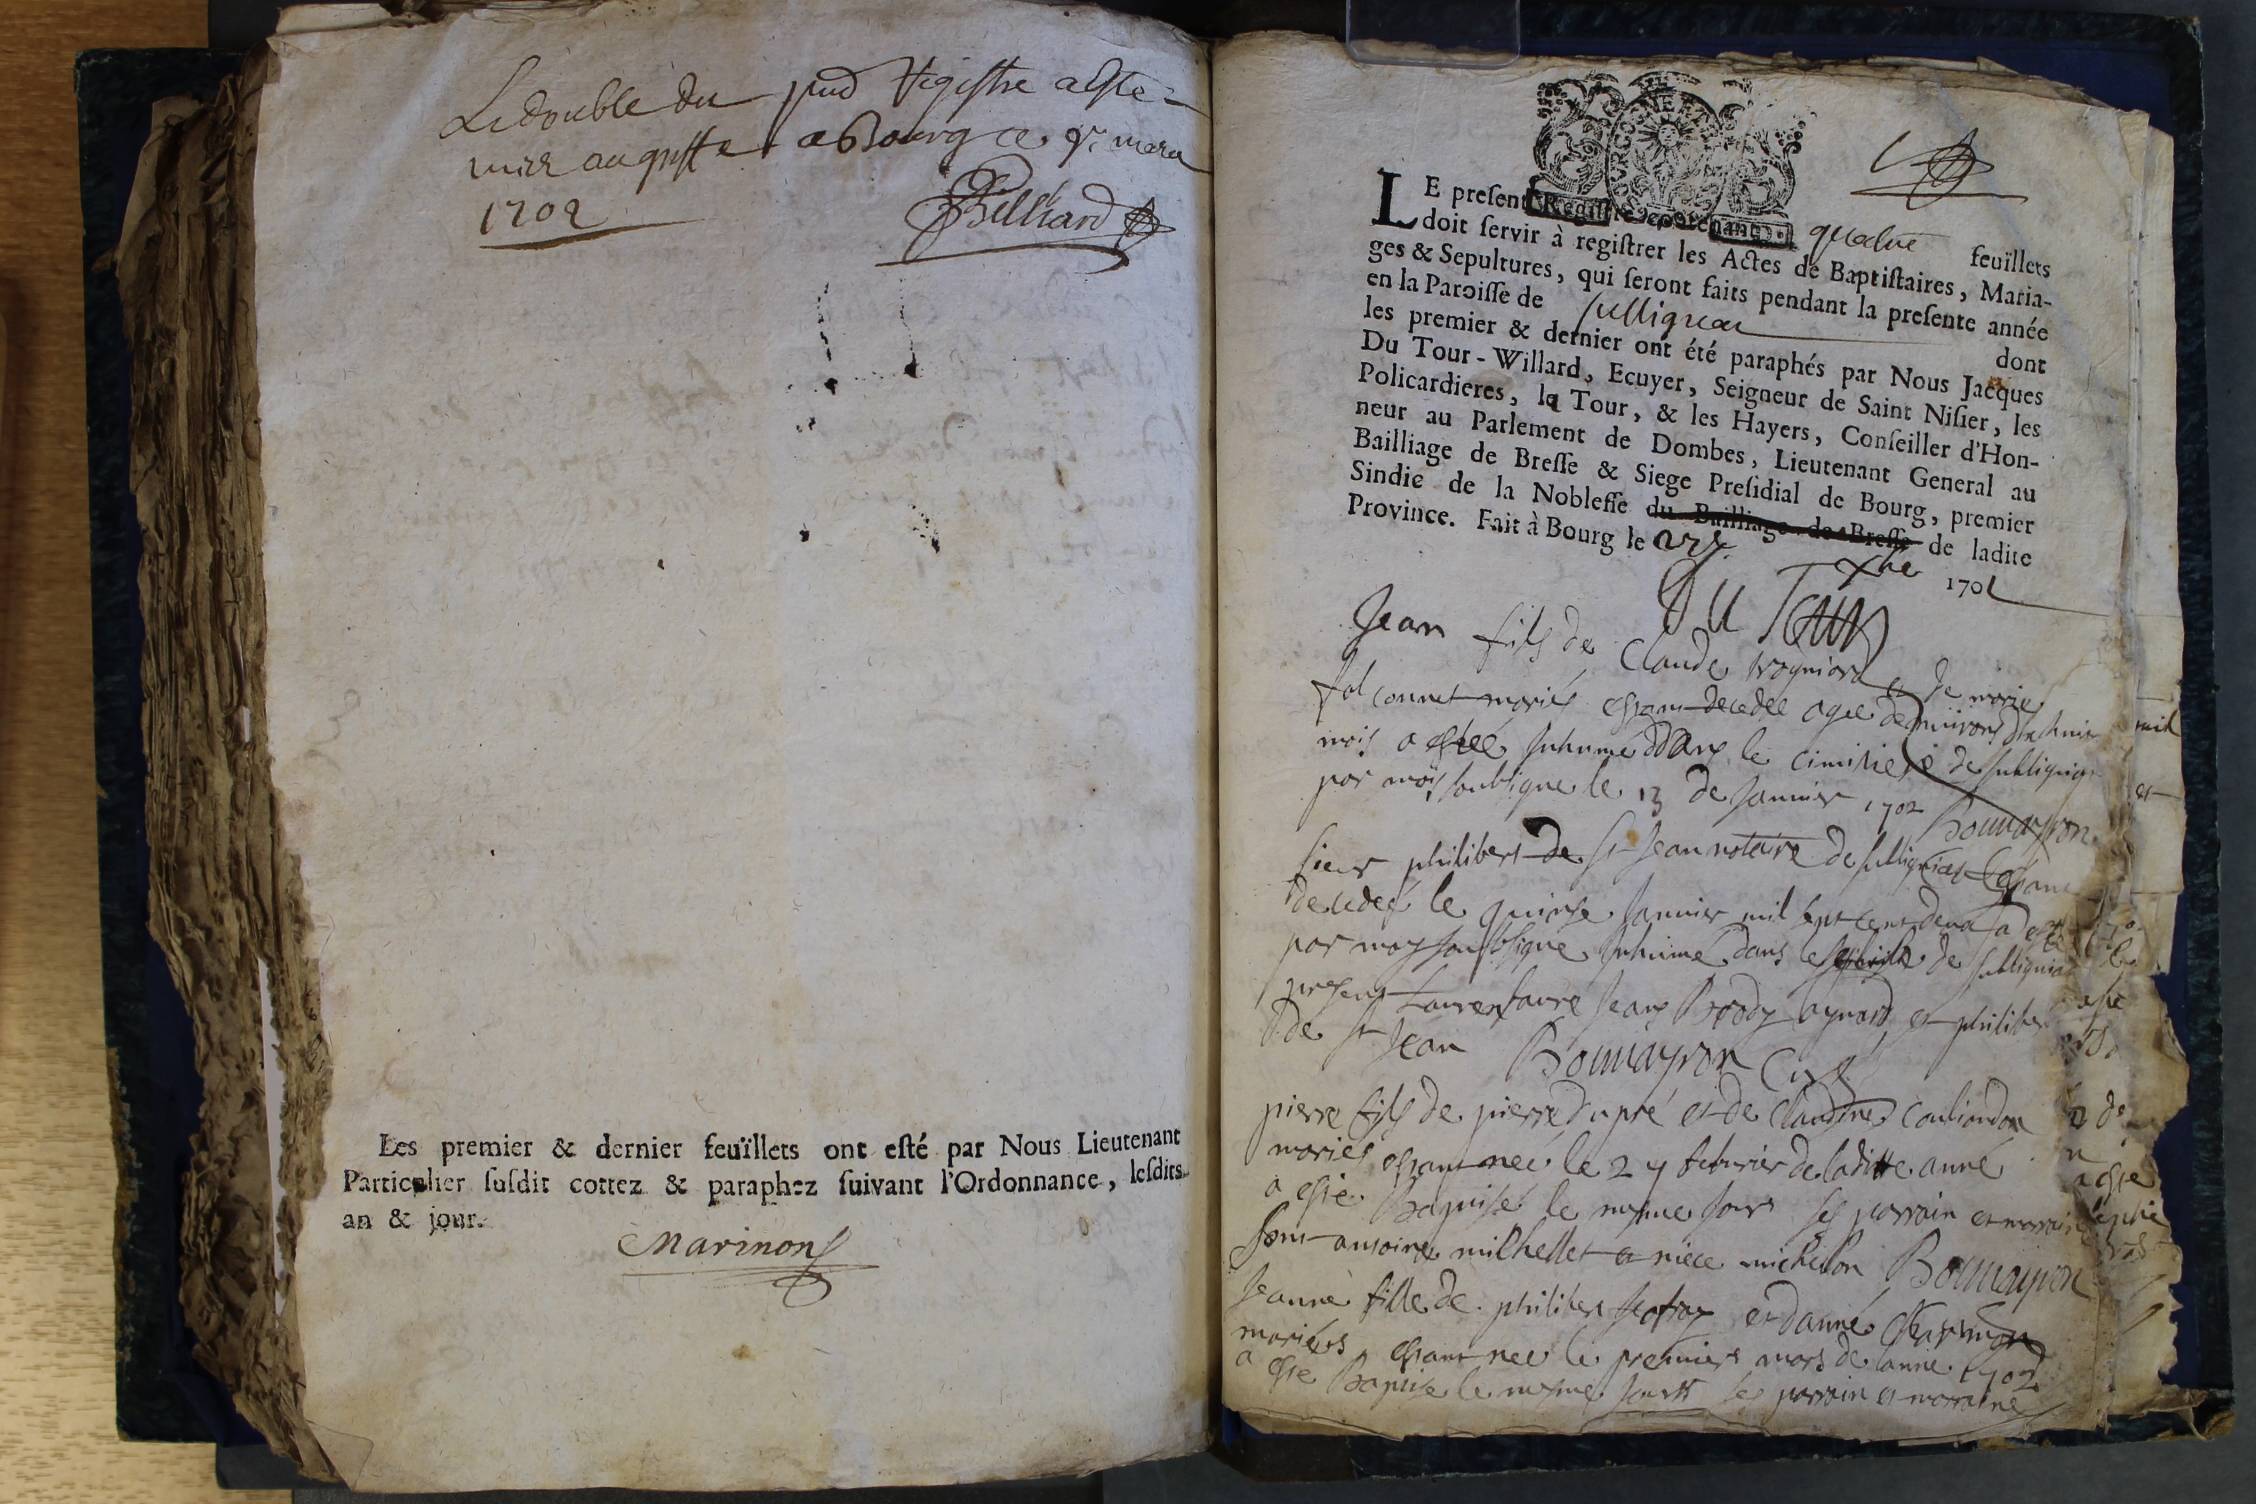 Le double du pnt Registre a esté
mis au greffe a Bourg ce 9e mars
1702
Billiard
Les premier & dernier feuïllets ont esté par Nous Lieutenant
Particulier susdit cottez & paraphez suivant l'Ordonnance, lesdits
an & jour.
Marinon
LE present Registre contenant quatre feuïllets
doit servir à registrer les Actes de Baptistaires, Maria-
ges & Sepultures, qui seront faits pendant la presente année
en la Paroisse de Sullignat dont
les premier & dernier ont été paraphés par Nous Jacques
Du Tour-Willard, Ecuyer, Seigneur de Saint Nisier, les
Policardieres, la Tour, & les Hayers, Conseiller d'Hon-
neur au Parlement de Dombes, Lieutenant General au
Bailliage de Bresse & Siege Presidial de Bourg, premier
Sindic de la Noblesse du Bailliage de Bresse de ladite
Province. Fait à Bourg le xbre 1701
Du Tour
Jean fils de Claude et de marie
falconnet mariés estant decedee agee denuirons
mois a estéé Inhumé dans le cimitiere de sulligniat
par moy soubsigne le 13 de Januier 1702 Bouuayron
sieur philibert de st Jean notaire de sulligniat estant
decedeé le quinse Januier mil sept cent deux a esté
par moy soubsigne Inhumé dans de sulligniat
present Laurent faure Jean aynard et philibert
de st Jean Bouuayron Curé
pierre fils de pierre dupré et de Claudine
mariés estant neé le 24 feburier de laditte anné
a esté Baptisé le mesme Jour ses parrain et marraine
sont antoine milhellet et michelon Bouuayron
Jeanne fille de philibert et danné
mariés estant nee le premier mars de lanne 1702
a esté Baptise le mesme Jour ses parrain et marraine